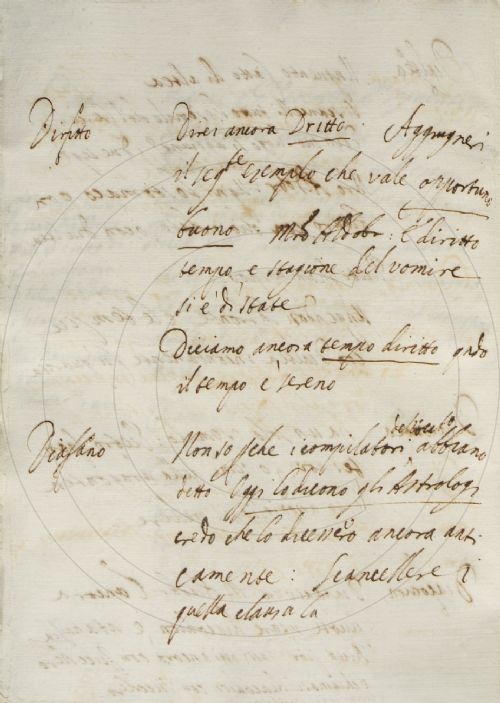 Diritto
Direi ancora Dritto. Aggiugnerei
il seg.te esempio che vale opportuno
buono Mro Aldobr: e'l diritto
tempo, e stagione del vomire
si è di state
Diciamo ancora tempo diritto qñdo
il tempo è sereno
Diafano
Non so se che i compilatori abbiano
detto Oggi lo dicono gli Astrologi
credo che lo dicevano ancora anti
camente: Scancellerei
questa clausula